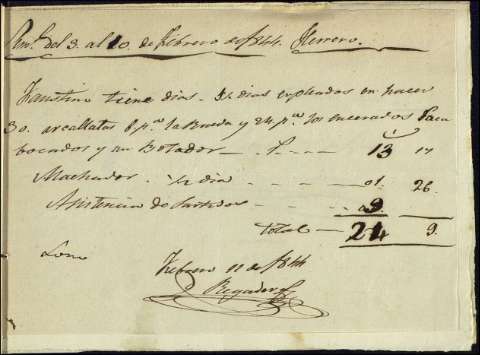 del 3. al 10. de Febrero de 1844. Herrero.
Faustino tiene dias. 3½ dias empleados en hacer
30. 6 p.ª la Rueda y 24 p.ª los encerados
bocados y un Botador P. 13 17
Machador. ½ dia 01. 26.
Asistencia de 9
total 24 9.
Febrero 11 de 1844